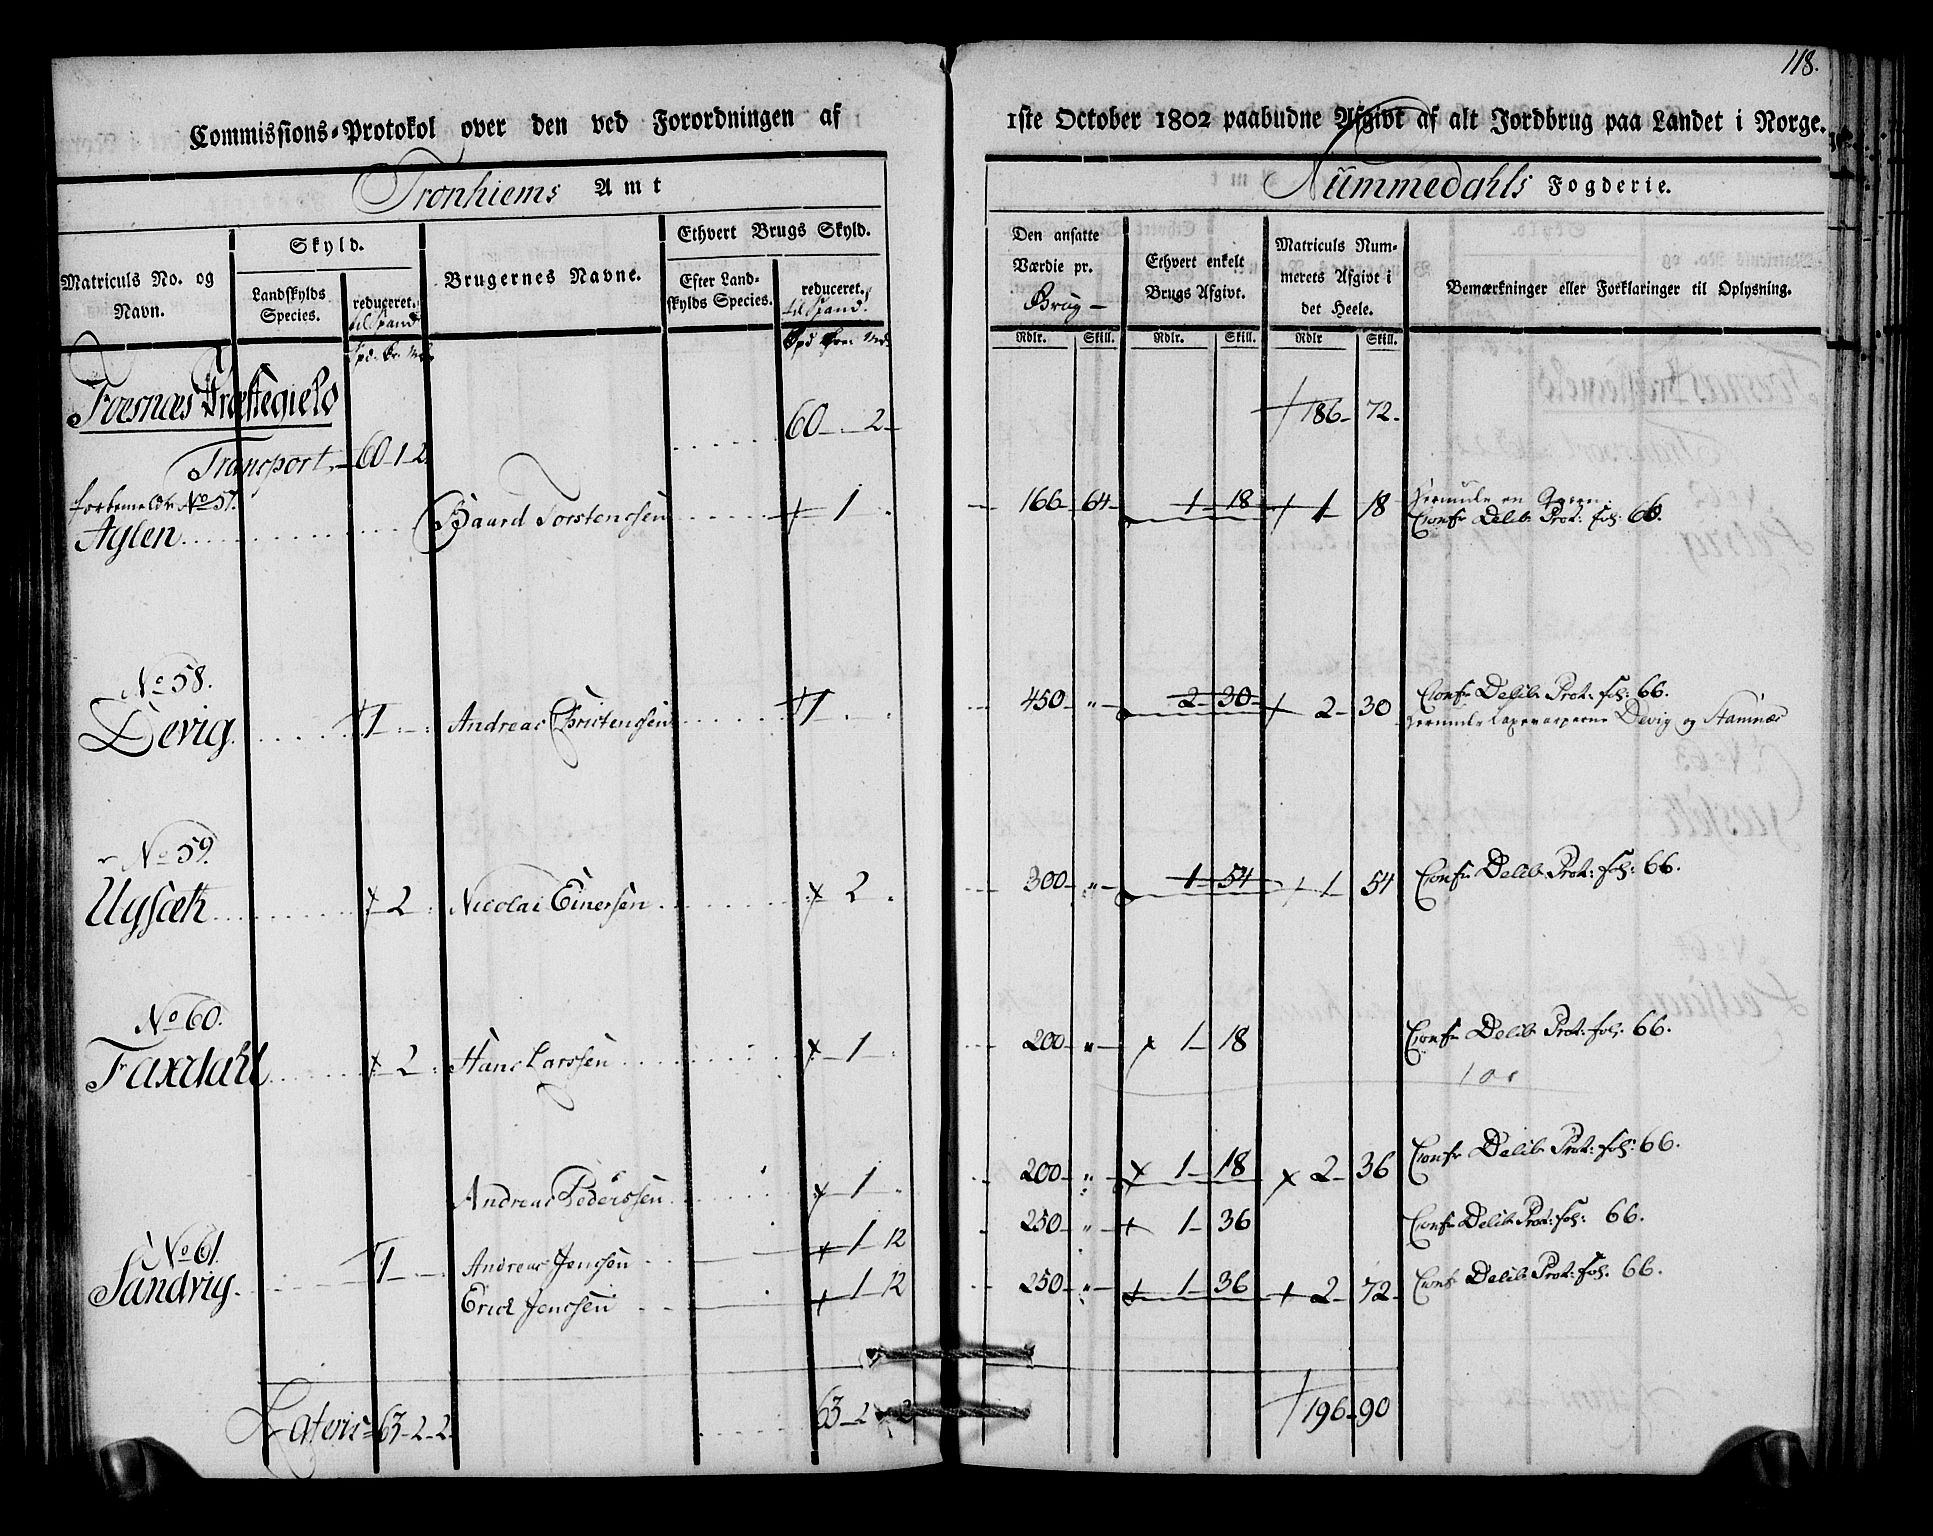 118.
Commissions-Protokol over den ved Forordningen af 1ste October 1802 paabudne Afgivt af alt Jordbrug paa Landet i Norge.
Tronhiems Amt
Nummedahls Fogderie.
Matriculs No. og Navn.
Skyld.
Landskylds Species.
reduceret. til Spand
Spd. Ør. Mk.
Brugernes Navne.
Ethvert Brugs Skyld.
Efter Landskylds Species.
reduceret. til Spand.
Spd Ører Mk.
Den ansatte Værdie pr. Brug
Rdlr. Skill.
Ethvert enkelt Brugs Afgivt.
Rdlr. Skill.
Matriculs Nummerets Afgivt i det Heele.
Rdlr Skill.
Bemærkninger eller Forklaringer til Oplysning.
Foesnæs Præstegield
Transport 60 1 2. 60 - 2 186 72
No 57.
Aglen Baard Torstensen 1 166 64 1 18 1 18 en
Confr Delib: Prot: fol: 66.
No 58.
Devig 1 Andreas Christensen 1 450 " 2 30 2 30 Confr Delib: Prot: fol: 66.
Devig og Stamnæs
No 59.
Uysæth 2 Nicolai Einersen 2 300 " 1 54 1 54 Confr Delib: Prot: fol: 66.
No 60.
Faxdahl 2 Hans Larssen 1 200 " 1 18 Confr Delib: Prot: fol: 66.
Andreas Pederssen 1 200 " 1 18 2 36 Confr Delib: Prot: fol: 66.
No 61.
Sandvig 1 Andreas Jenssen 1 12 250 " 1 36 Confr Delib: Prot: fol: 66.
Erich Jenssen 1 12 250 " 1 36 2 72 Confr Delib: Prot: fol. 66.
Lateris 63 2 2 63 2 2 196 90